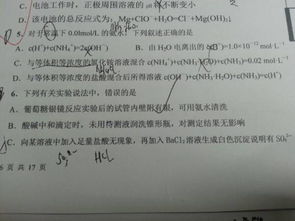 C. 电池工作时,正极周围溶液的 不断变小
D. 该电池的总反应式为:Mg+ClO⁻+H₂O=Cl⁻+Mg(OH)₂↓
5. 对于常温下 0.00mol/L 的氨水,下列叙述正确的是
A. c(H⁺)+c(NH₄⁺)=2c(OH⁻) B. 由 H₂O 电离出的 =1.0×10⁻¹² mol·L⁻¹
C. 与等体积等浓度的氯化铵溶液混合溶液中 c(NH₄⁺)+c(NH₃·H₂O)=0.02 mol·L⁻¹
D. 与等体积等浓度的盐酸混合后所得溶液 c(OH⁻)+c(NH₃·H₂O)=c(H⁺)
6. 下列有关实验说法中,错误的是
A. 葡萄糖银镜反应实验后的试管内壁附有银,可用氨水清洗
B. 酸碱中和滴定时,未用待测液润洗锥形瓶,对测定结果无影响
C. 向某溶液中加入足量盐酸无现象,再加入 BaCl₂ 溶液生成白色沉淀说明有 SO₄²⁻
6 页 共 17 页
HCl